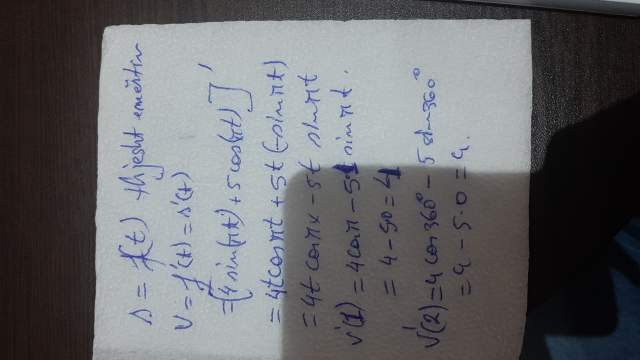 s = f(t) thjesht emërtim
v = f'(t) = s'(t)
= [4 sin(πt) + 5 cos(πt)]'
= 4t cos πt + 5t (-sin πt)
= 4t cos πx - 5t sin πt
v'(1) = 4 cos π - 5 1 sin πt.
= 4 - 50 = 4
v'(2) = 4 cos 360° - 5 sin 360°
= 4 - 5·0 = 4.